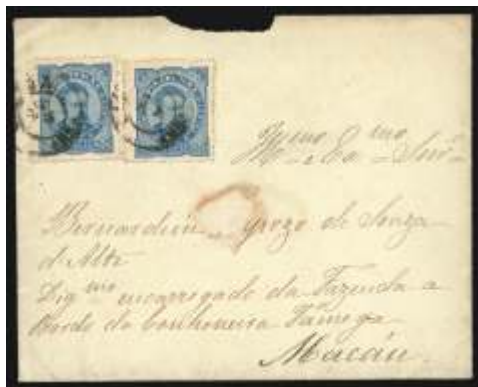 Illmo e Exmo Snr
Bernardino de Souza
d'Alte
Digmo encarregado da Fazenda a
Bordo da Canhoneira Tamega
Macáu